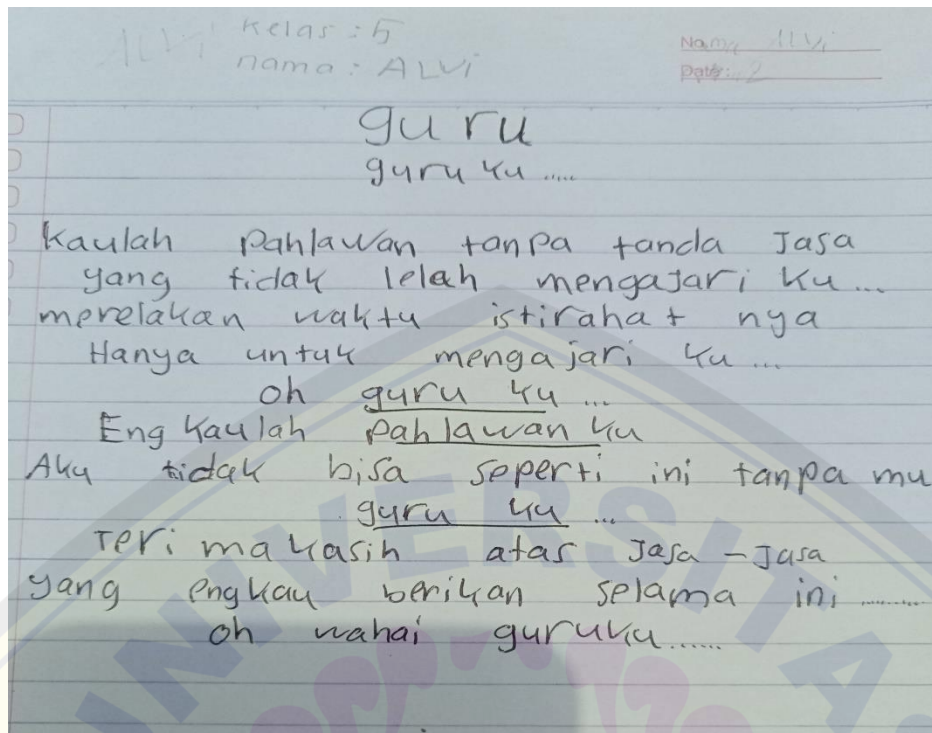 ALVi Kelas : 5
nama : ALVi
Name ALVi
Date: 2
guru
guru ku .....
Kaulah pahlawan tanpa tanda Jasa
yang tidak lelah mengajari ku ...
merelakan waktu istirahat nya
Hanya untuk mengajari ku ...
oh guru ku ...
Eng kaulah pahlawan ku
Aku tidak bisa seperti ini tanpa mu
guru ku ...
Teri makasih atas Jasa - Jasa
yang engkau berikan selama ini .........
oh wahai guruku ......
UNIVERSITA